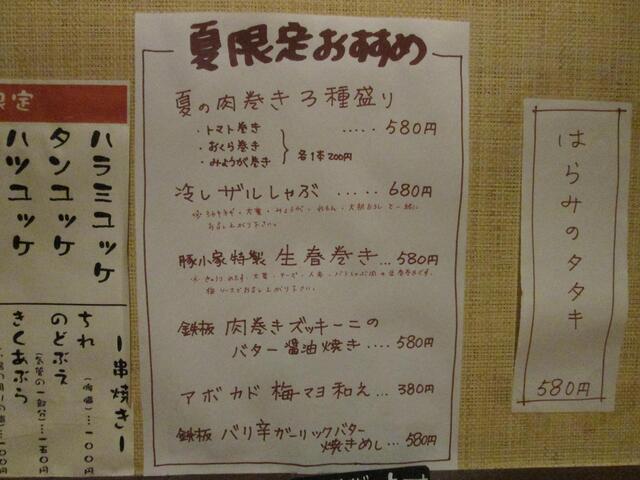 夏限定おすすめ
夏の肉巻き3種盛り
..... 580円
・トマト巻き
・おくら巻き
・みょうが巻き
各1本200円
冷しザルしゃぶ ..... 680円
豚小家特製 生春巻き...580円
鉄板 肉巻きズッキーニの
バター醤油焼き....580円
アボカド梅マヨ和え...380円
鉄板 バリ辛ガーリックバター
焼きめし...580円
はらみのタタキ
580円
限定
ハラミユッケ
タンユッケ
ハツユッケ
ー串焼きー
ちれ
...一〇〇円
のどぶえ
(気管の一部分)...一五〇円
きくあぶら
一〇〇円